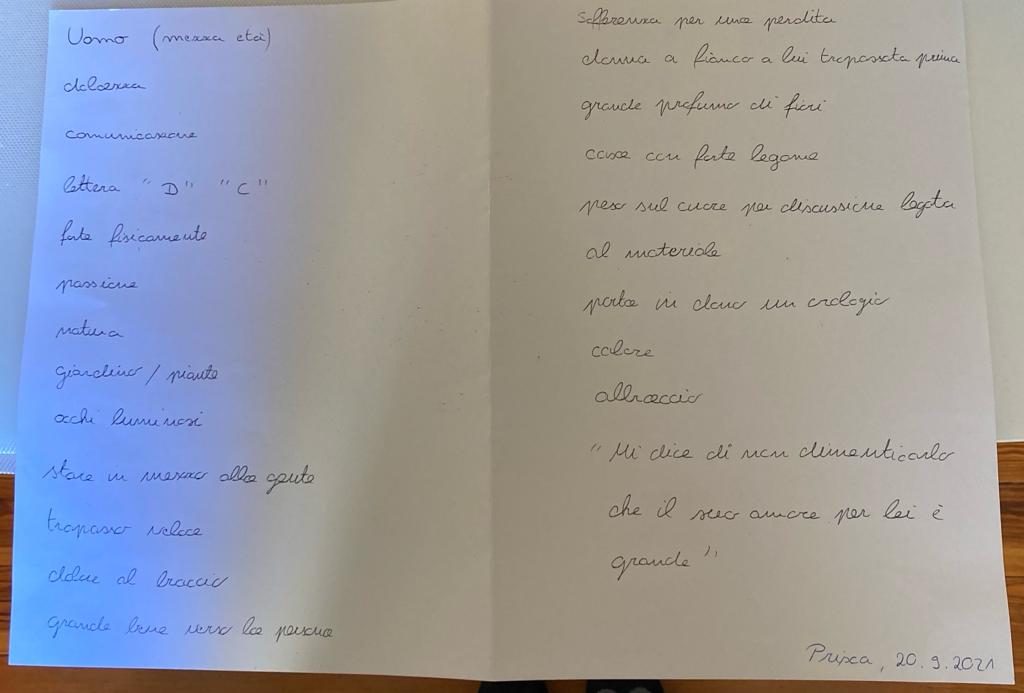 Uomo (mezza età)
dolcezza
comunicazione
lettera "D" "C"
forte fisicamente
passione
natura
giardino / piante
occhi luminosi
stare in mezzo alla gente
trapasso veloce
dolore al braccio
grande bene verso la persona
sofferenza per una perdita
donna a fianco a lui trapassata prima
grande profumo di fiori
casa con forte legame
peso sul cuore per discussione legata
al materiale
porta in dono un orologio
calore
abbraccio
"Mi dice di non dimenticarlo
che il suo amore per lei è
grande"
Prisca, 20.9.2021